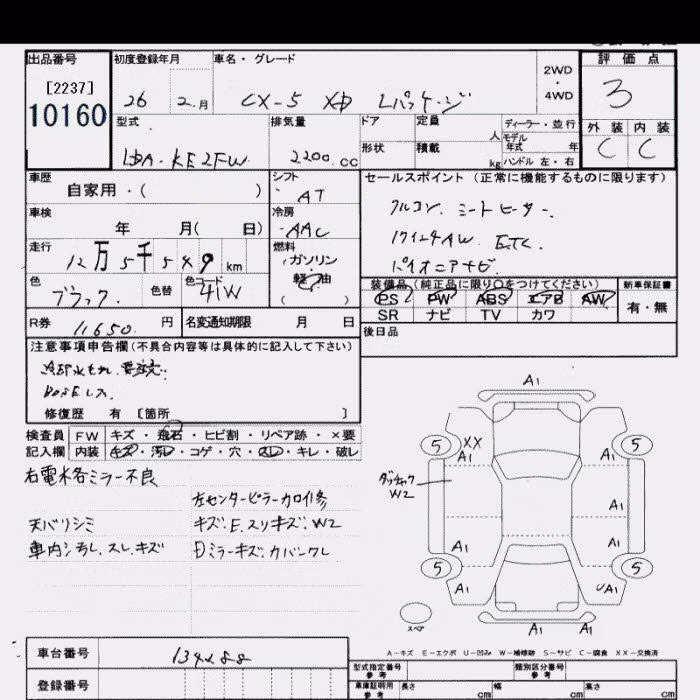 出品番号
[2237]
10160
初度登録年月
26 2月
車名・グレード
CX-5 XD Lパッケージ
2WD
・
4WD
評価点
3
外装 内装
C C
型式
LDA-KE2FW
排気量
2200 cc
ドア
定員
人
形状
積載
kg
ディーラー・並行
モデル年式 年
ハンドル 左・右
車歴
自家用・( )
シフト
AT
セールスポイント(正常に機能するものに限ります)
フルコン. シートヒーター.
17インチAW. ETC.
パイオニアナビ.
車検
年 月( 日)
冷房
AAC
走行
12万5千549km
燃料
ガソリン
・
軽油
( )
色
ブラック.
色替
色コード
41W
装備品(純正品に限り○をつけてください)
PS PW ABS エアB AW
SR ナビ TV カワ
新車保証書
有・無
R券
11,650. 円
名変通知期限 月 日
後日品
注意事項申告欄(不具合内容等は具体的に記入して下さい)
冷却水もれ. 要注意.
BOSEレス.
修復歴 有 [箇所 ]
検査員 FW キズ・飛石・ヒビ割・リペア跡・×要
記入欄 内装 キズ・汚レ・コゲ・穴・スレ・キレ・破レ
右電水各ミラー不良
左センターピラーカロイ修
天バリシミ キズ.E.スリキズ.W2
車内シオレ.スレ.キズ Dミラーキズ.カバーワレ
A1
5 XX A1 A1 5
ダッチャク
W2
A1
A1 A1
5 A1 UA1 5
スペア
A1 A1
A-キズ E-エクボ U-凹み W-補修跡 S-サビ C-腐食 XX-交換済
車台番号
134288
登録番号
型式指定番号
参考
類別区分番号
参考
車庫証明用
参考
長さ cm 幅 cm 高さ cm